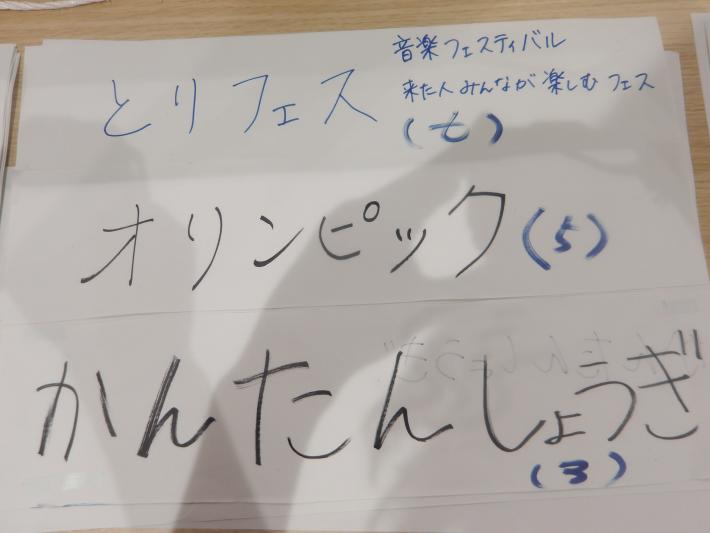 とりフェス
音楽フェスティバル
来た人みんなが楽しむフェス
(七)
オリンピック(5)
かんたんしょうぎ
(3)